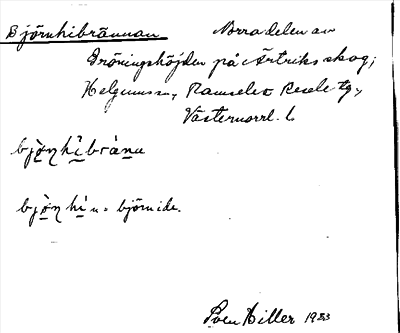 Björnhibrännan Norra delen av
Gröningshöjden på Ärtriks skog;
Helgumssn, Ramsele o Resele tg,
Västernorrl. l.
bjò̱ŋhìbrànna
bjò̱ŋ hì n = björnide.
Sven Hiller 1933